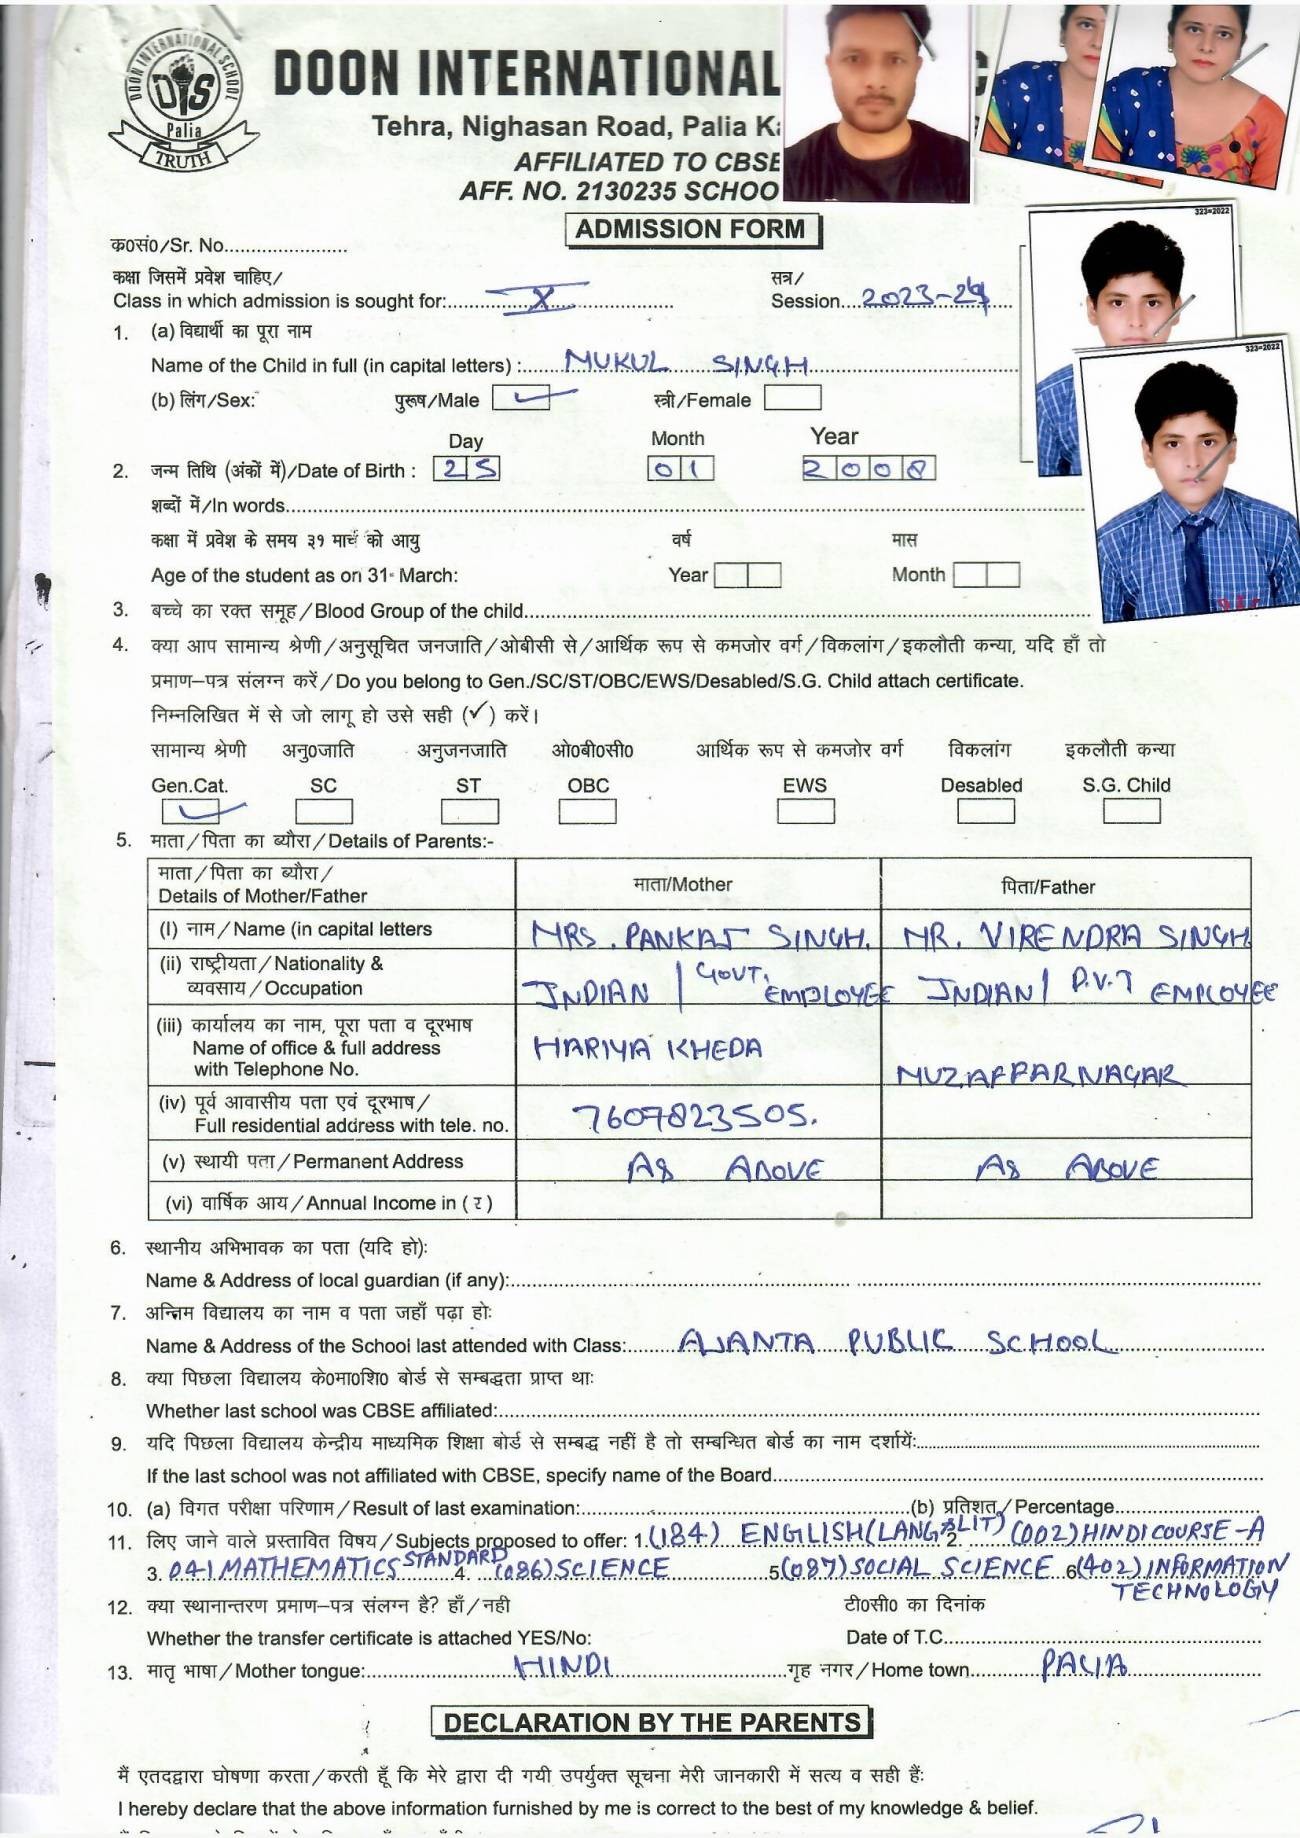 DOON INTERNATIONAL SCHOOL
DIS
Palia
TRUTH
DOON INTERNATIONAL
Tehra, Nighasan Road, Palia
AFFILIATED TO CBSE
AFF. NO. 2130235 SCHOO
ADMISSION FORM
323=2022
323=2022
क०सं०/Sr. No.
कक्षा जिसमें प्रवेश चाहिए/ सत्र/
Class in which admission is sought for: X Session 2023-24
1. (a) विद्यार्थी का पूरा नाम
Name of the Child in full (in capital letters) : MUKUL SINGH
(b) लिंग/Sex: पुरूष/Male ✓ स्त्री/Female
Day Month Year
2. जन्म तिथि (अंकों में)/Date of Birth : 25 01 2008
शब्दों में/In words
कक्षा में प्रवेश के समय ३१ मार्च को आयु वर्ष मास
Age of the student as on 31- March: Year Month
3. बच्चे का रक्त समूह/Blood Group of the child
4. क्या आप सामान्य श्रेणी/अनुसूचित जनजाति/ओबीसी से/आर्थिक रूप से कमजोर वर्ग/विकलांग/इकलौती कन्या, यदि हाँ तो
प्रमाण–पत्र संलग्न करें/Do you belong to Gen./SC/ST/OBC/EWS/Desabled/S.G. Child attach certificate.
निम्नलिखित में से जो लागू हो उसे सही (✓) करें।
सामान्य श्रेणी अनु०जाति अनुजनजाति ओ०बी०सी० आर्थिक रूप से कमजोर वर्ग विकलांग इकलौती कन्या
Gen.Cat. SC ST OBC EWS Desabled S.G. Child
✓
5. माता/पिता का ब्यौरा/Details of Parents:-
माता/पिता का ब्यौरा/
Details of Mother/Father माता/Mother पिता/Father
(I) नाम/Name (in capital letters MRS. PANKAJ SINGH. MR. VIRENDRA SINGH
(ii) राष्ट्रीयता/Nationality &
व्यवसाय/Occupation INDIAN / GOVT. EMPLOYEE INDIAN / P.V.T EMPLOYEE
(iii) कार्यालय का नाम, पूरा पता व दूरभाष
Name of office & full address HARIYA KHEDA
with Telephone No. MUZAFFARNAGAR
(iv) पूर्व आवासीय पता एवं दूरभाष/
Full residential address with tele. no. 7607823505.
(v) स्थायी पता/Permanent Address AS ABOVE AS ABOVE
(vi) वार्षिक आय/Annual Income in (₹)
6. स्थानीय अभिभावक का पता (यदि हो):
Name & Address of local guardian (if any):
7. अन्तिम विद्यालय का नाम व पता जहाँ पढ़ा हो:
Name & Address of the School last attended with Class: AJANTA PUBLIC SCHOOL
8. क्या पिछला विद्यालय के०मा०शि० बोर्ड से सम्बद्धता प्राप्त था:
Whether last school was CBSE affiliated:
9. यदि पिछला विद्यालय केन्द्रीय माध्यमिक शिक्षा बोर्ड से सम्बद्ध नहीं है तो सम्बन्धित बोर्ड का नाम दर्शायें:
If the last school was not affiliated with CBSE, specify name of the Board
10. (a) विगत परीक्षा परिणाम/Result of last examination: (b) प्रतिशत/Percentage
11. लिए जाने वाले प्रस्तावित विषय/Subjects proposed to offer: 1. (184) ENGLISH(LANG & LIT) 2. (002) HINDI COURSE-A
3. 041 MATHEMATICS STANDARD 4. (086) SCIENCE 5 (087) SOCIAL SCIENCE 6 (402) INFORMATION
TECHNOLOGY
12. क्या स्थानान्तरण प्रमाण–पत्र संलग्न है? हाँ/नही टी०सी० का दिनांक
Whether the transfer certificate is attached YES/No: Date of T.C.
13. मातृ भाषा/Mother tongue: HINDI गृह नगर/Home town PALIA
DECLARATION BY THE PARENTS
मैं एतदद्वारा घोषणा करता/करती हूँ कि मेरे द्वारा दी गयी उपर्युक्त सूचना मेरी जानकारी में सत्य व सही हैं:
I hereby declare that the above information furnished by me is correct to the best of my knowledge & belief.